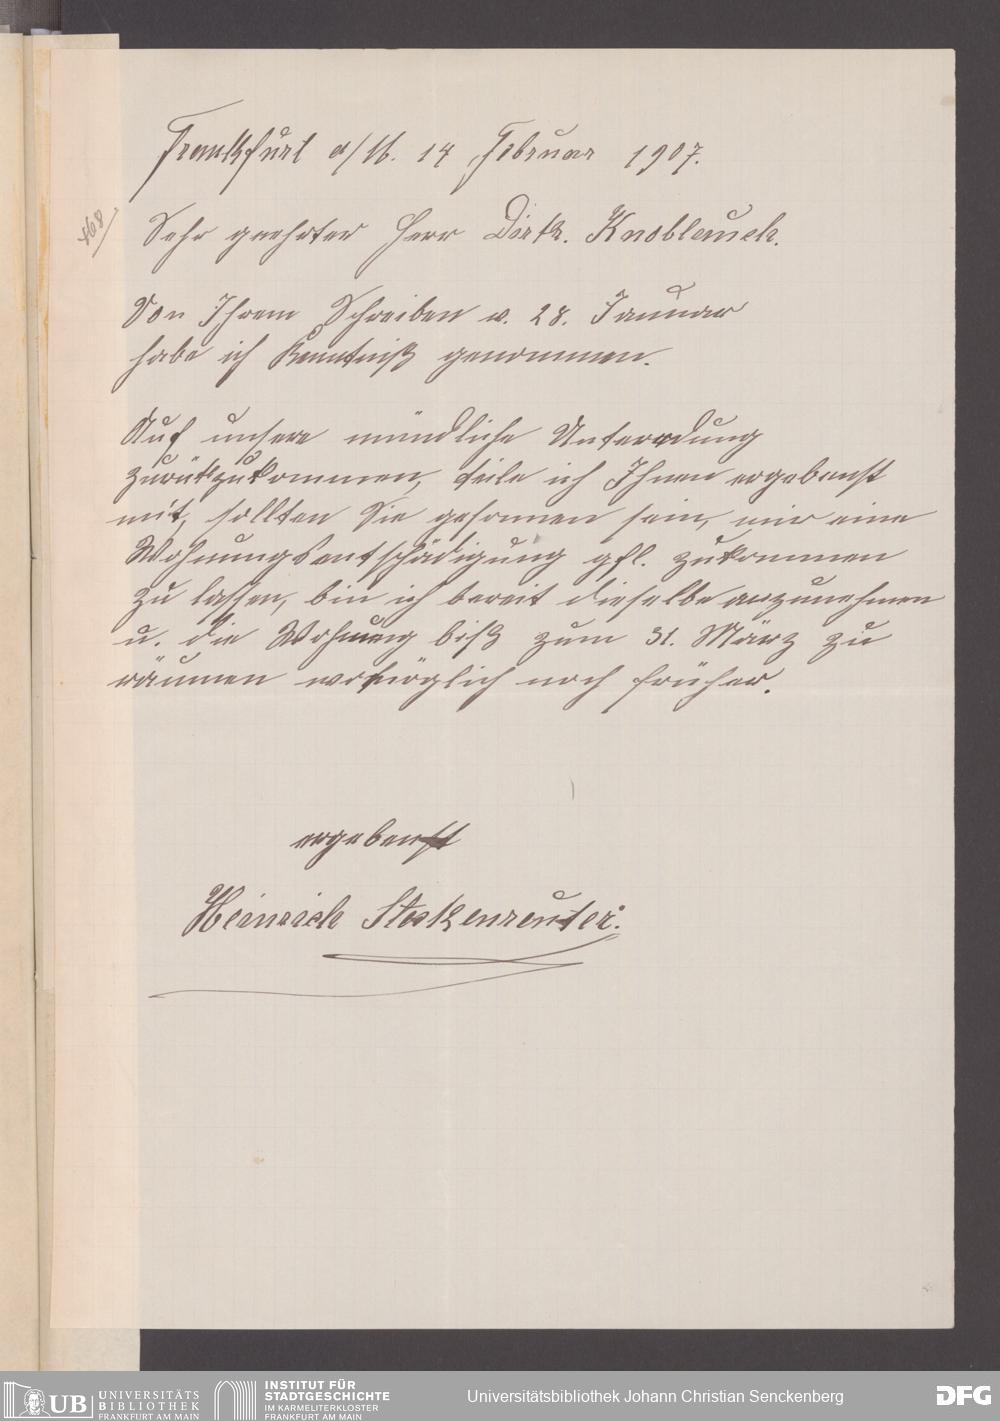 Frankfurt a/M. 14 Februar 1907.
468
Sehr geehrter Herr Dirkt. Knoblauch.
Von Ihrem Schreiben v. 28. Januar
habe ich Kenntniß genommen.
Auf unsere mündliche Unterredung
zurükzukommen, teile ich Ihnen ergebenst
mit, sollten Sie gesonnen sein, mir eine
Wohnungsentschädigung gfl. zukommen
zu lassen, bin ich bereit dieselbe anzunehmen
u. die Wohnung biß zum 31. März zu
räumen womöglich noch früher.
ergebenst
Heinrich Stokenreuter.
UB UNIVERSITÄTS
BIBLIOTHEK
FRANKFURT AM MAIN
INSTITUT FÜR
STADTGESCHICHTE
IM KARMELITERKLOSTER
FRANKFURT AM MAIN
Universitätsbibliothek Johann Christian Senckenberg
DFG